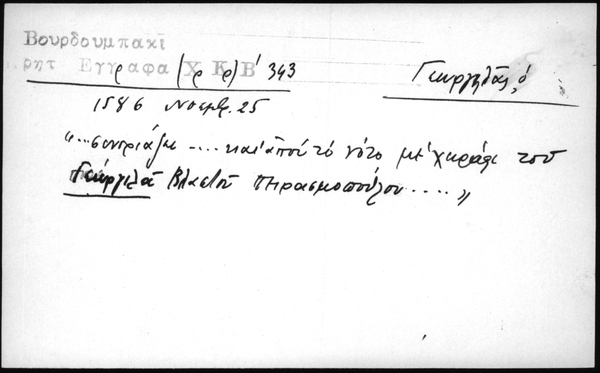 Βουρδουμπακῖ
ρητ Εγγραφα (Χ Κ Β΄ 343
Γεωργιλᾶς, ὁ
1586 Νοεμβ. 25
"... συνοριάζει .... καὶ ἀπὸ τὸ νότο μὲ χωράφι τοῦ
Γεωργιλᾶ Βλαστοῦ Πηρασμοπούλου .... "